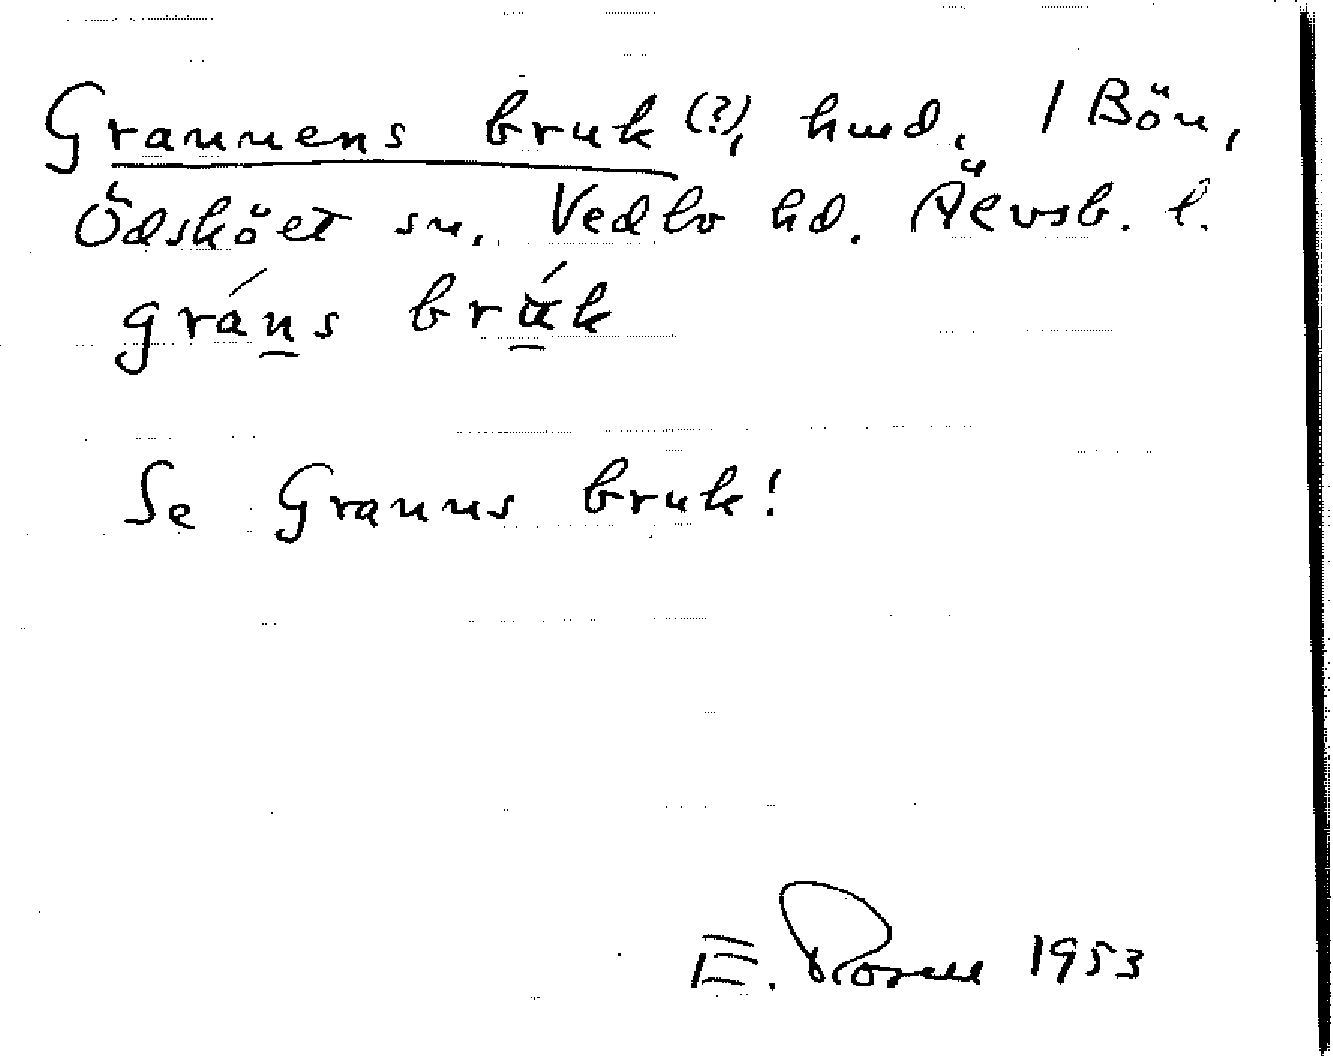 Grannens bruk (?), hmd. 1 Bön,
Ödsköet sn, Vedbo hd. Älvsb. l.
gráns brúk
Se Granns bruk!
E. Rosell 1953